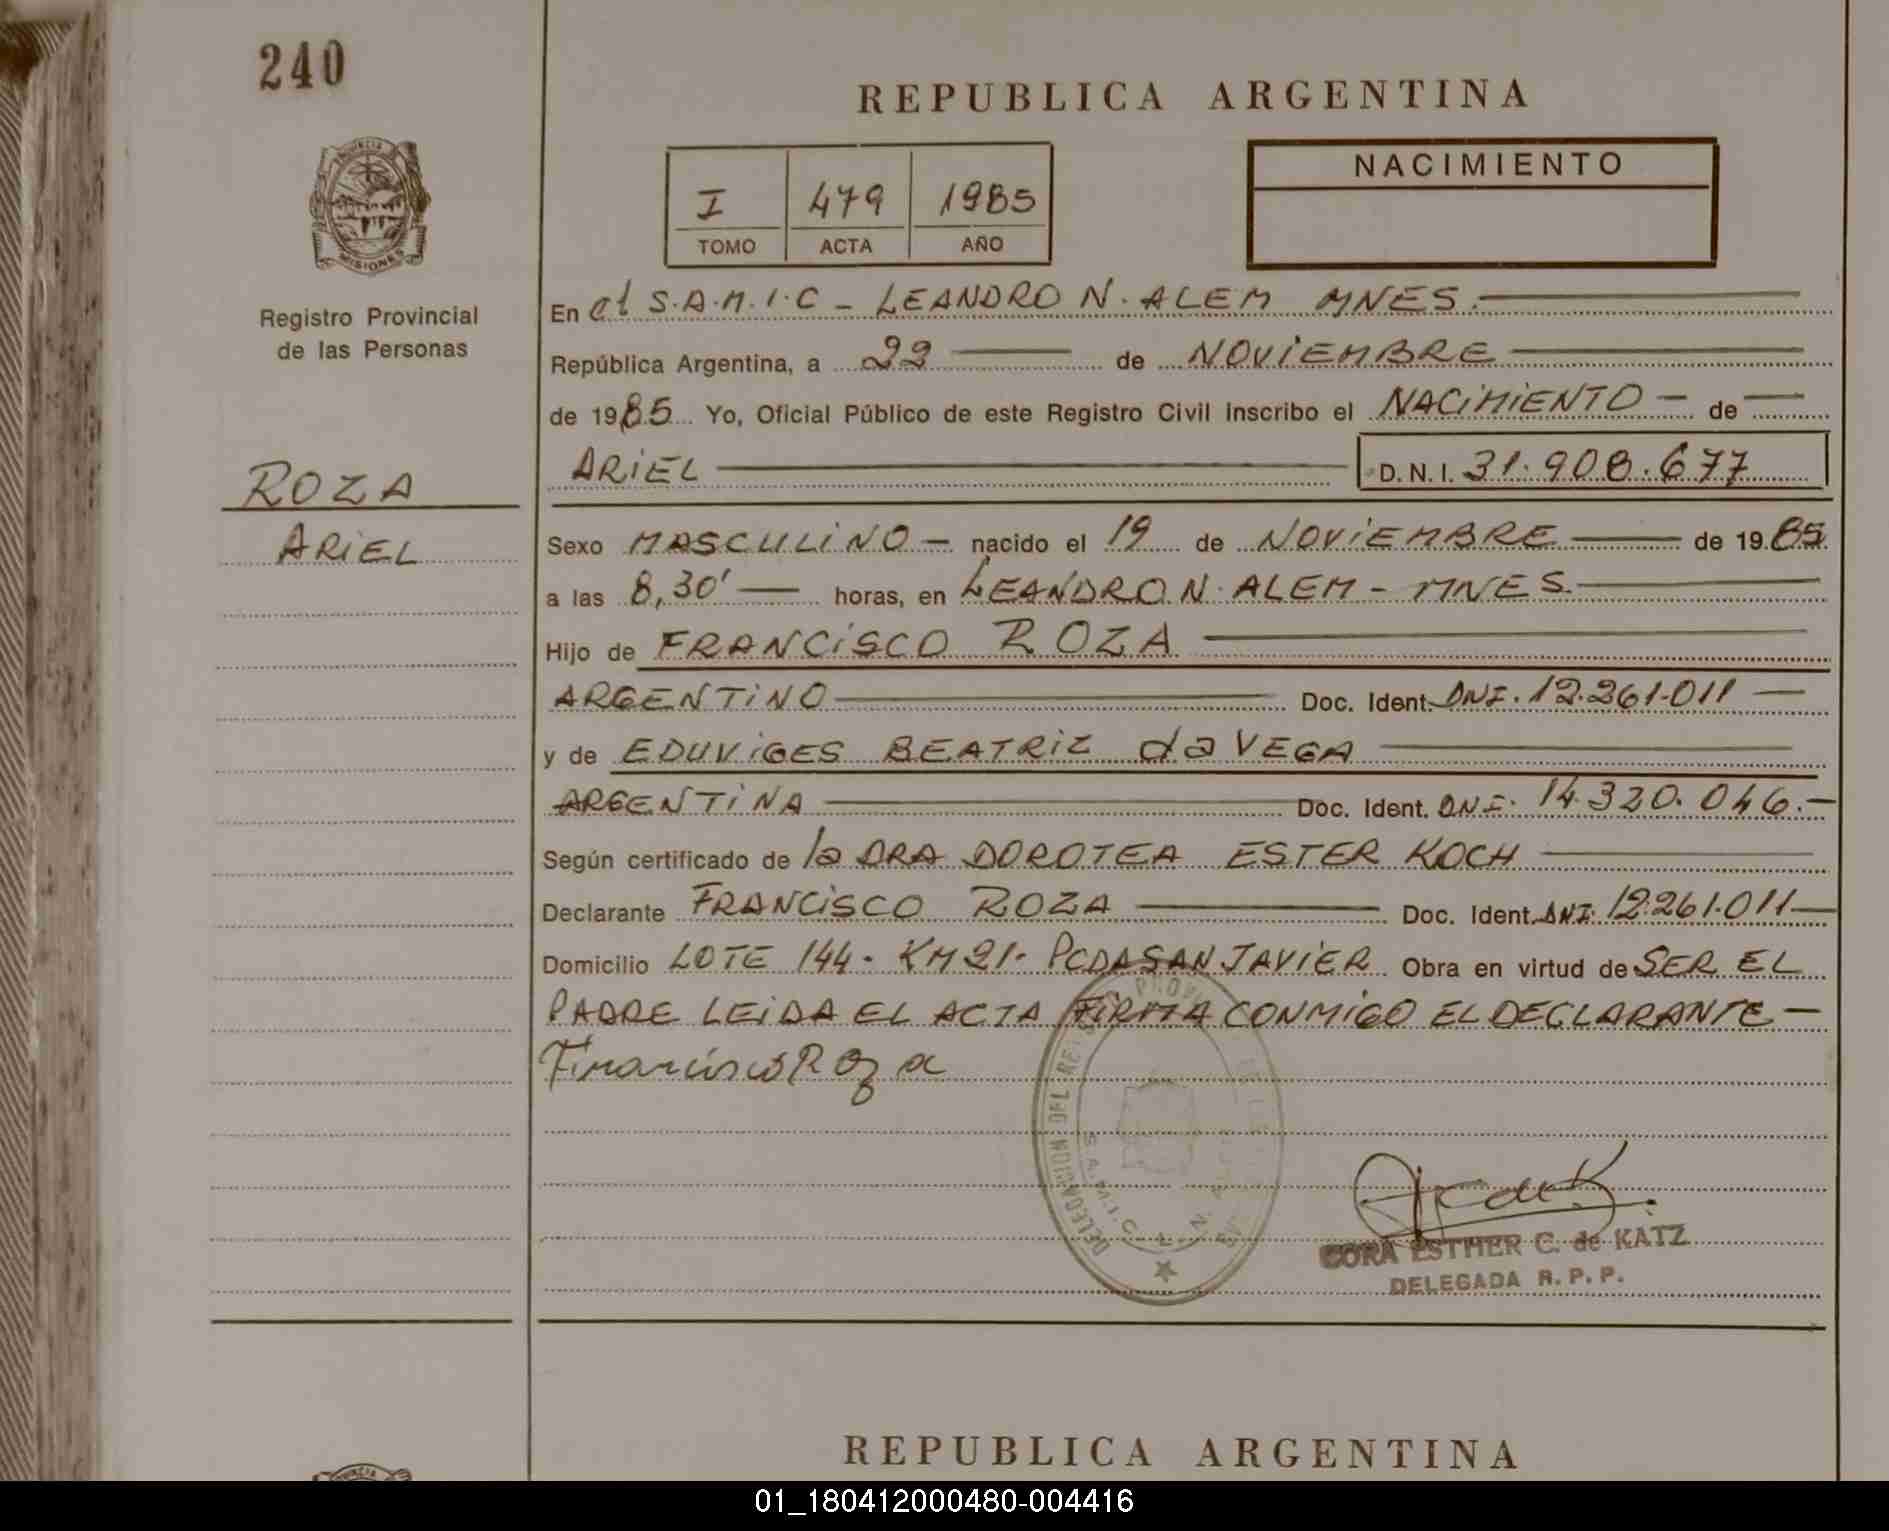 240
REPUBLICA ARGENTINA
NACIMIENTO
I 479 1985
TOMO ACTA AÑO
PROVINCIA
MISIONES
Registro Provincial
de las Personas
ROZA
ARIEL
En el S.A.M.I.C - LEANDRO N. ALEM MNES.
República Argentina, a 22 de NOVIEMBRE
de 1985 Yo, Oficial Público de este Registro Civil inscribo el NACIMIENTO - de
ARIEL D.N.I. 31.908.677
Sexo MASCULINO - nacido el 19 de NOVIEMBRE de 1985
a las 8,30' horas, en LEANDRO N. ALEM - MNES
Hijo de FRANCISCO ROZA
ARGENTINO Doc. Ident. DNI. 12.261.011
y de EDUVIGES BEATRIZ da VEGA
ARGENTINA Doc. Ident. DNI. 14.320.046.-
Según certificado de la DRA DOROTEA ESTER KOCH
Declarante FRANCISCO ROZA Doc. Ident. DNI. 12.261.011
Domicilio LOTE 144. KM 21. PCDA SAN JAVIER Obra en virtud de SER EL
PADRE LEIDA EL ACTA FIRMA CONMIGO EL DECLARANTE -
Francisco Roza
DELEGACION DEL
S.A.M.I.C. L. N.
CORA ESTHER C. de KATZ
DELEGADA R.P.P.
REPUBLICA ARGENTINA
01_180412000480-004416